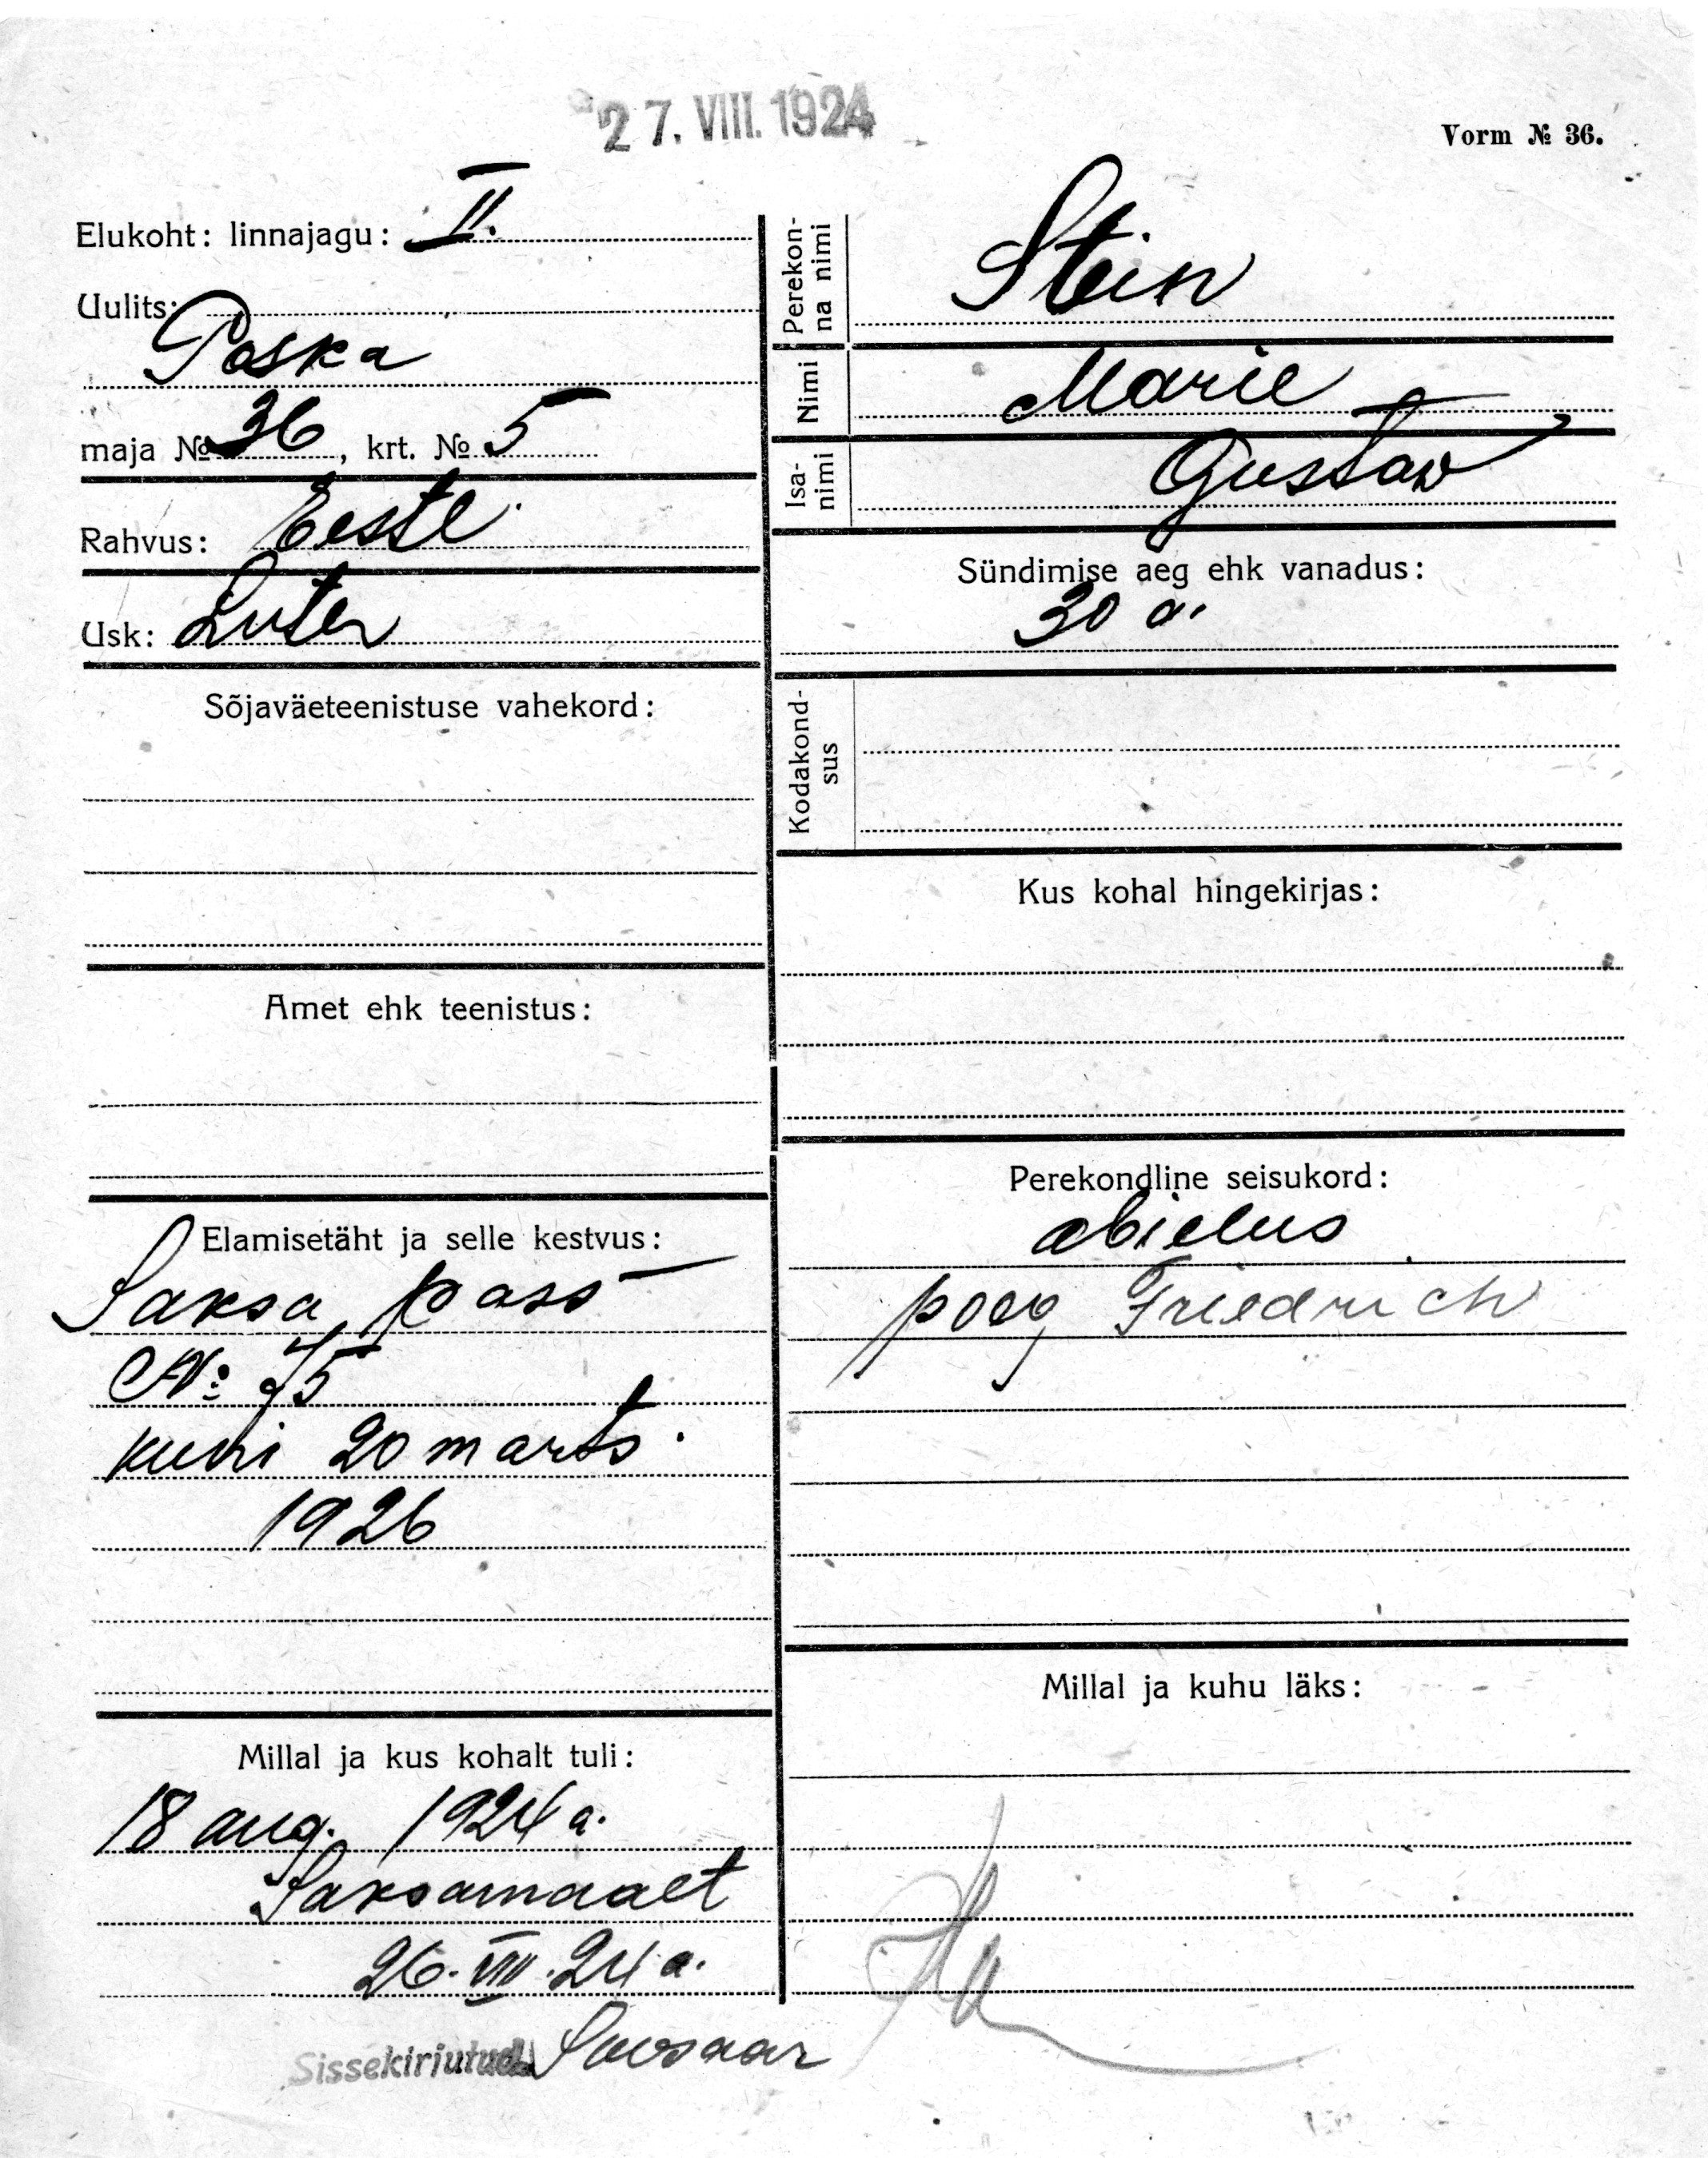 27. VIII. 1924
Vorm № 36.
Elukoht: linnajagu: II.
Uulits:
Poska
maja № 36, krt. № 5
Rahvus: Eesti
Usk: Luter
Sõjaväeteenistuse vahekord:
Amet ehk teenistus:
Elamisetäht ja selle kestvus:
Saksa pass
№ 75
kuni 20 marts
1926
Millal ja kus kohalt tuli:
18 aug. 1924 a.
Saksamaalt
26. VIII. 24 a.
Sissekirjutud
Perekon-
na nimi
Stein
Nimi
Marie
Isa-
nimi
Gustaw
Sündimise aeg ehk vanadus:
30 a.
Kodakond-
sus
Kus kohal hingekirjas:
Perekondline seisukord:
abielus
poeg Friedrich
Millal ja kuhu läks: